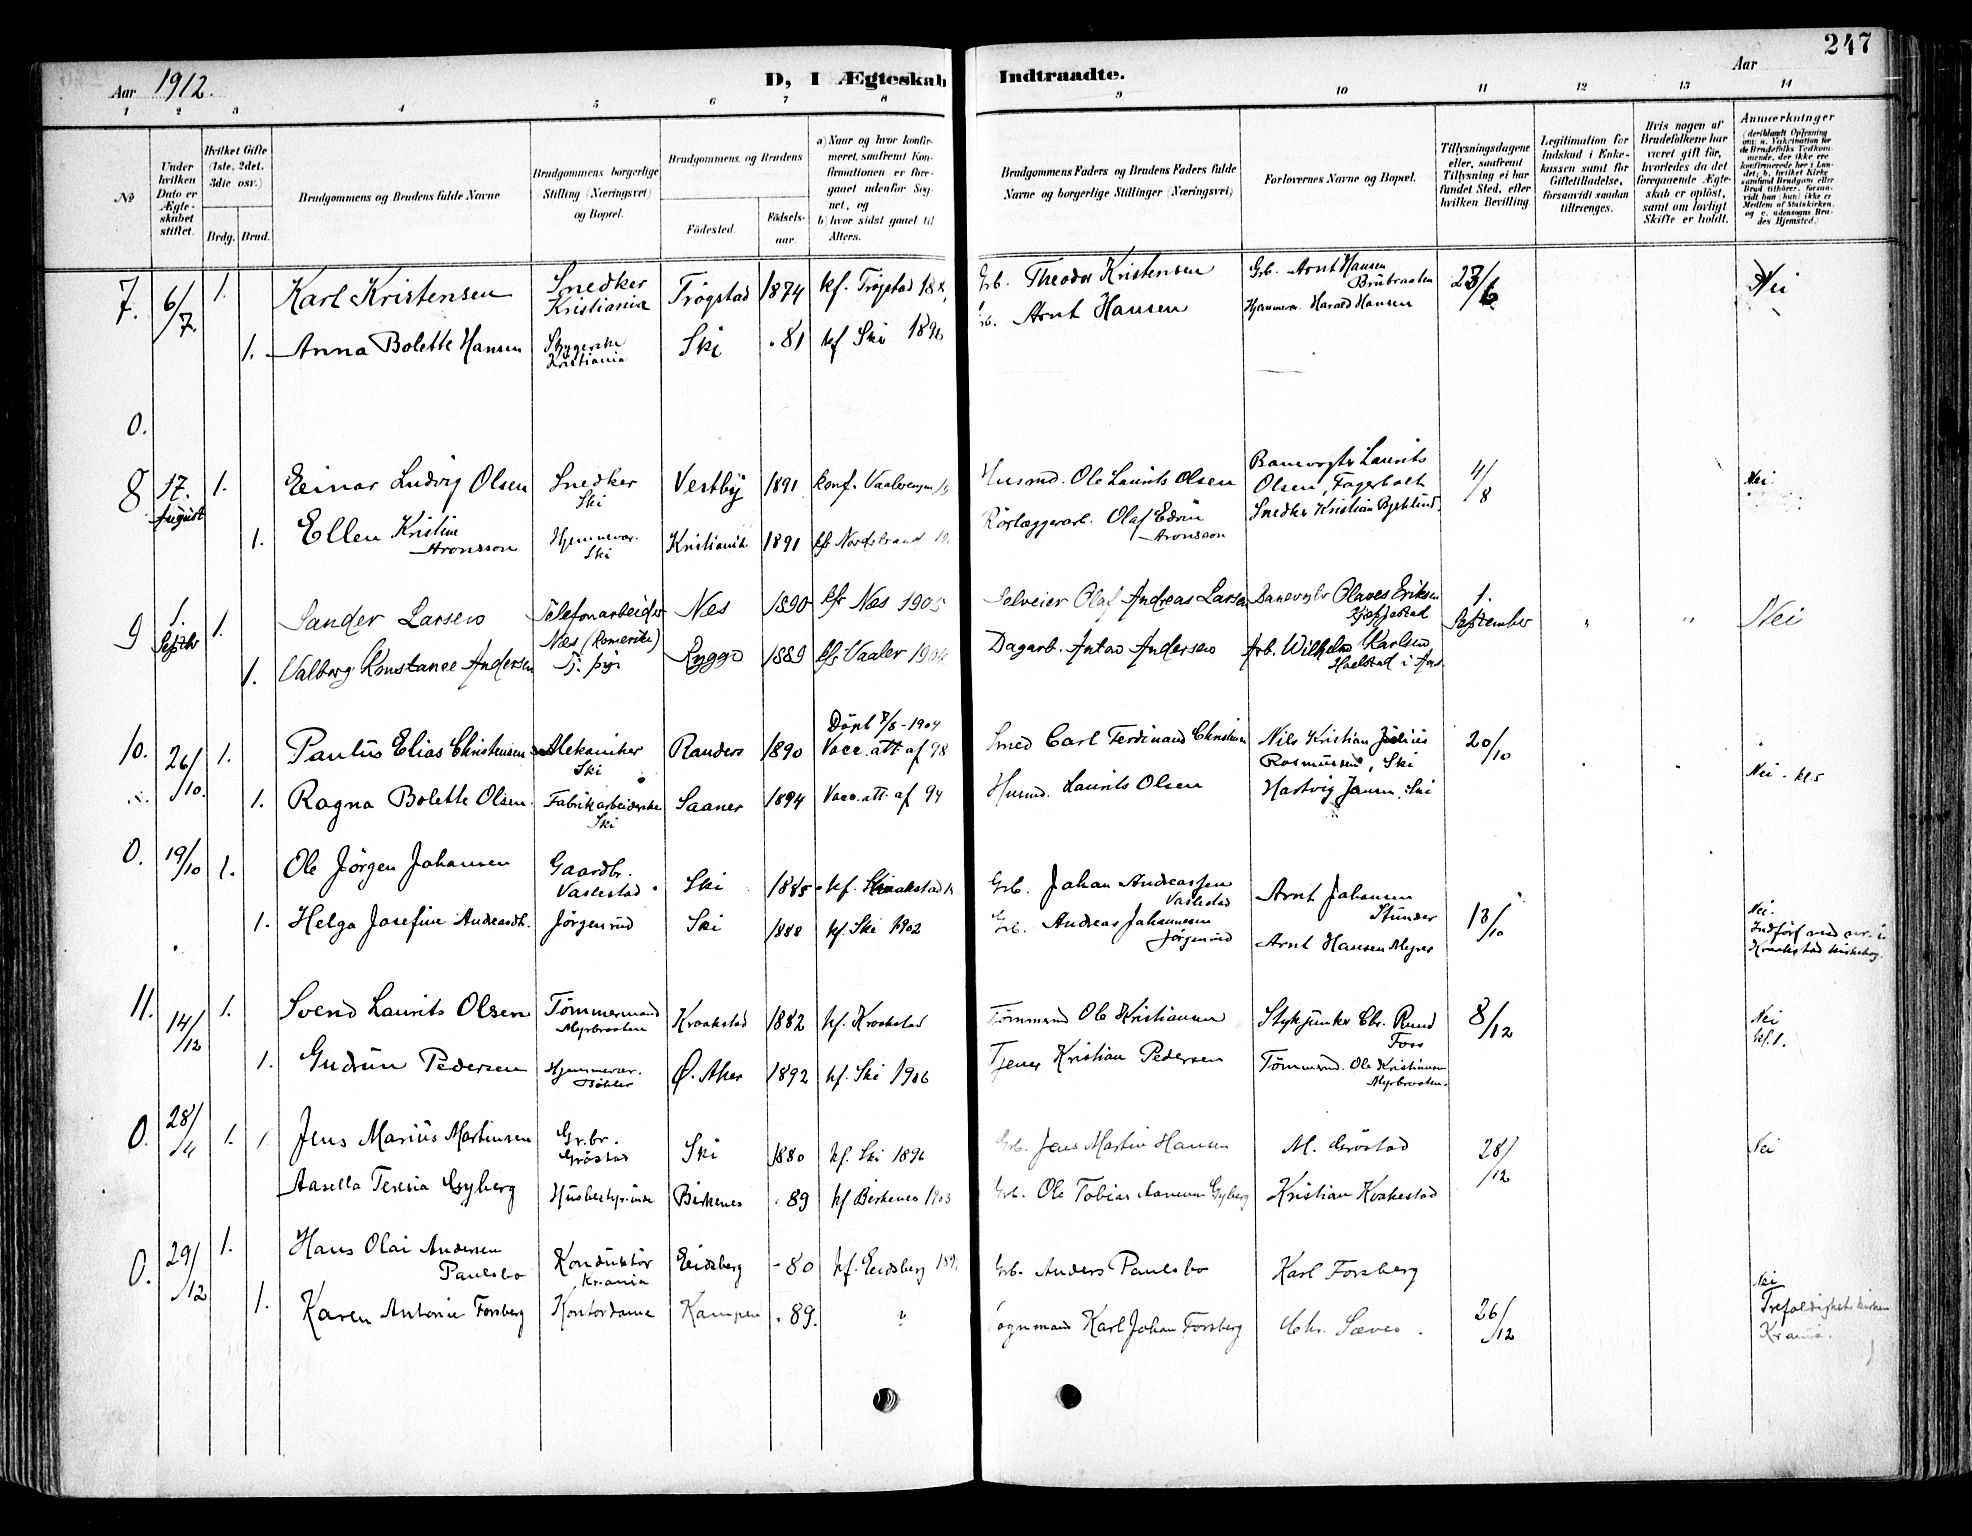 247
Aar 1912.
D, I Ægteskab Indtraadte.
Aar
1 2 3 4 5 6 7 8 9 10 11 12 13 14
No
Under hvilken Dato er Ægteskabet stiftet.
Hvilket Gifte (1ste, 2det, 3die osv.)
Brdg. Brud.
Brudgommens og Brudens fulde Navne
Brudgommens borgerlige Stilling (Næringsvei) og Bopæl.
Brudgommens og Brudens
Fødested.
Fødselsaar.
a) Naar og hvor konfirmeret, saafremt Konfirmationen er foregaaet udenfor Sognet, og
b) hvor sidst gaaet til Alters.
Brudgommens Faders og Brudens Faders fulde Navne og borgerlige Stillinger (Næringsvei)
Forlovernes Navne og Bopæl.
Tillysningsdagene eller, saafremt Tillysning ei har fundet Sted, efter hvilken Bevilling
Legitimation for Indskud i Enkekassen samt for Giftetilladelse, forsaavidt saadan tiltrænges.
Hvis nogen af Brudefolkene har været gift før, hvorledes da det foregaaende Ægteskab er opløst, samt om lovligt Skifte er holdt.
Anmærkninger
7. 6/7. 1. Karl Kristensen Snedker Kristiania Trøgstad 1874 kf. Trøgstad Theodor Kristensen Grb. Arnt Hansen Brubraaten 23/6 Nei
1. Anna Bolette Hansen Kristiania Ski 81 kf Ski 1896 Arnt Hansen Harald Hansen
0.
8 17. August 1. Einar Ludvig Olsen Snedker Ski Vestby 1891 konf. Husmd. Ole Laurits Olsen Banevogter Laurits Olsen, Fagerholt 4/8 Nei.
1. Ellen Kristine Aronsson Hjemmevær. Ski Kristiania 1891 kfr Nordstrand Olaf Edvin Aronsson Snedker Kristian
9 1. Septbr 1. Sander Larsen Telefonarbeider Næs (Romerike) Næs 1890 kfr Næs 1905 Selveier Olaf Andreas Larsen Banevogter Olaves Eriksen 1. September " " Nei
1. Valborg Konstance Andersen Rygge 1889 kfr Vaaler 1904 Dagarb. Anton Andersen Arb. Wilhelm Karlsen
10. 26/10. 1. Paulus Elias Christensen Mekaniker Ski Randers 1890 Døpt 7/8-1904 Vacc. att. af 98 Smed Carl Ferdinand Nils Kristian Julius Rasmussen, Ski 20/10
1. Ragna Bolette Olsen. Fabrikarbeiderske Ski Saaner 1894 Vacc. att. af 94 Husmd. Laurits Olsen Hartvig Jansen, Ski Nei
0. 19/10 1. Ole Jørgen Johansen Gaardbr. Vaslestad Ski 1885 kf. Kraakstad Grb. Johan Andreassen Vaslestad Arnt Johansen Stunner 13/10
1. Helga Josefine Andreasdt. Jørgenrud Ski 1888 kf. Ski 1902 Grb. Andreas Johannesen Jørgenrud Arnt Hansen Myrer Nei. Indført i Kraakstad kirkebog.
11. 14/12 1. Svend Laurits Olsen Tømmermand Myrbraaten Kraakstad 1882 kf. Kraakstad Ole Kristiansen Stykjunker Chr. Ruud Foss 8/12 Nei
1. Gudrun Pedersen Hjemmevær. Ø. Aker 1892 kf. Ski 1906 Tjener Kristian Pedersen Tømmermd. Ole Kristiansen Myrbraaten.
0. 28/ 1. 1. Jens Marius Martinsen Gr.br. Grøstad Ski 1880 kf. Ski 1896 Grb. Jens Martin Hansen M. Grøstad 28/12 Nei
Aasella Teresia Gyberg Husbestyrinde Birkenes 89 kf Birkenes 1903 Grb. Ole Tobias Gyberg Kristian
0. 29/12 1. Hans Olai Andersen Paulsbo Konduktør Krania Eidsberg 80 kf. Eidsberg Grb. Anders Paulsbo Karl Forsberg
1. Karen Antonie Forsberg Kontordame Kampen 89. " Karl Johan Forsberg Chr. Sæves. 26/12 Nei Trefoldighetskirken Krania.